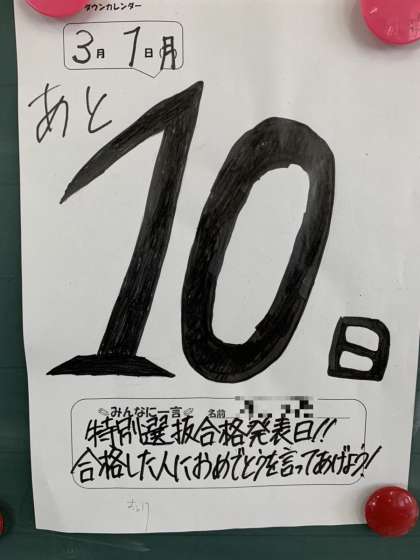 ダウンカレンダー
3月1日(月)
あと
10
日
みんなに一言 名前
特別選抜合格発表日!!
合格した人におめでとうを言ってあげよう!